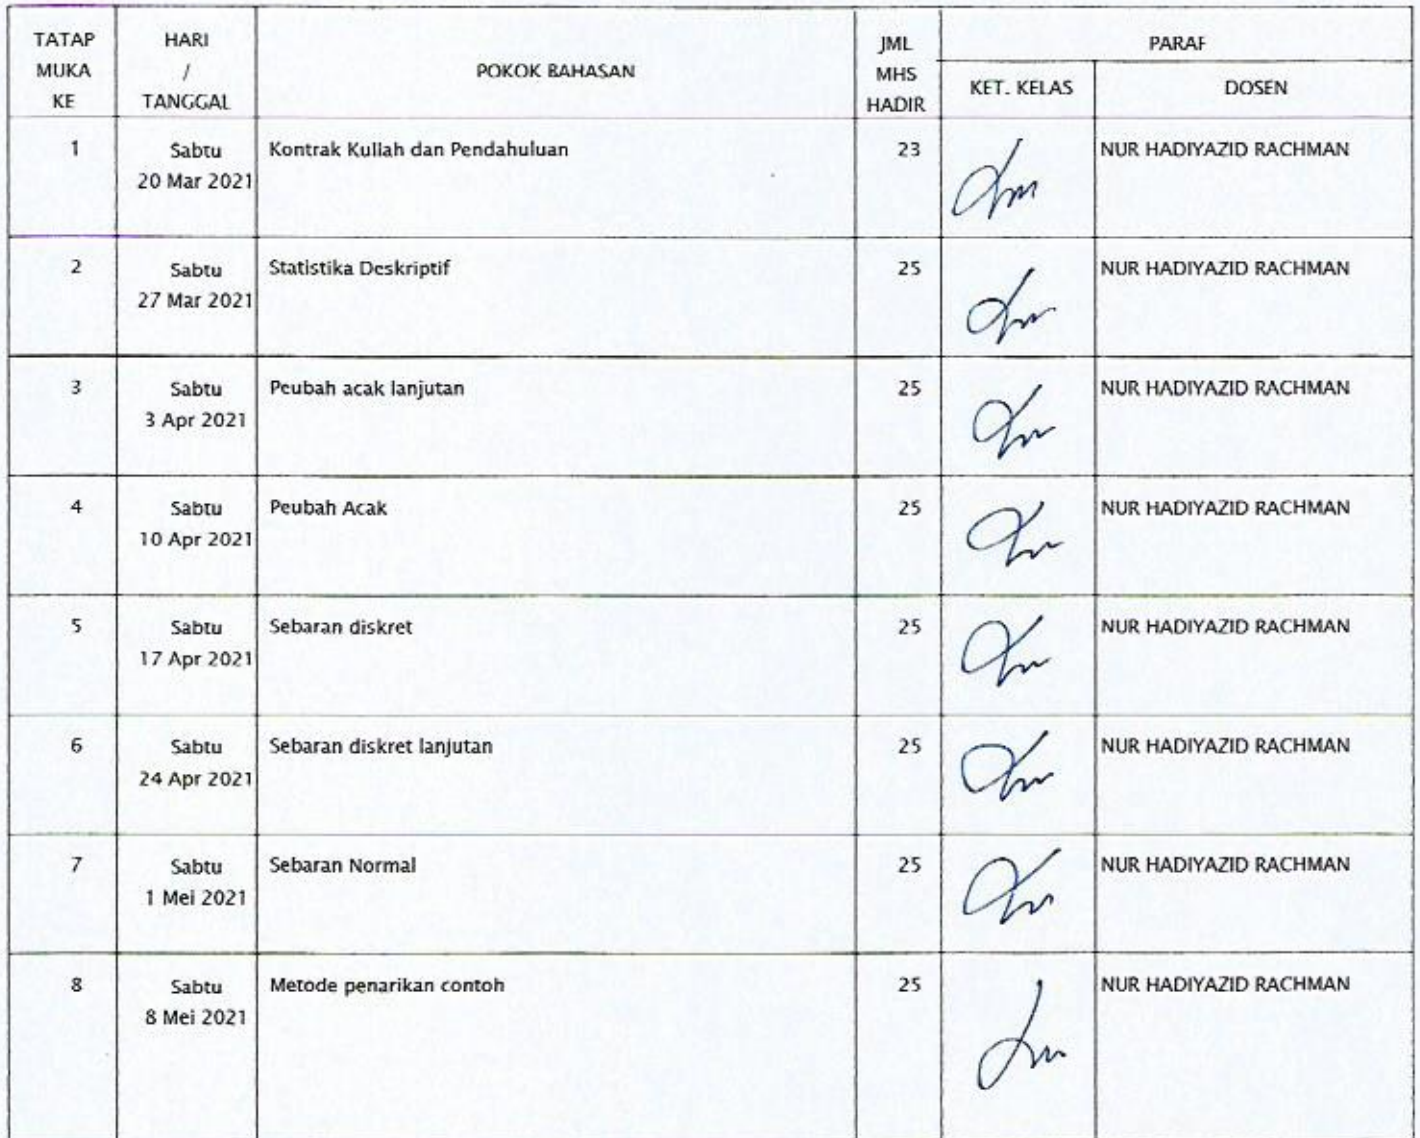 TATAP MUKA KE
HARI / TANGGAL
POKOK BAHASAN
JML MHS HADIR
PARAF
KET. KELAS
DOSEN
1
Sabtu
20 Mar 2021
Kontrak Kuliah dan Pendahuluan
23
NUR HADIYAZID RACHMAN
2
Sabtu
27 Mar 2021
Statistika Deskriptif
25
NUR HADIYAZID RACHMAN
3
Sabtu
3 Apr 2021
Peubah acak lanjutan
25
NUR HADIYAZID RACHMAN
4
Sabtu
10 Apr 2021
Peubah Acak
25
NUR HADIYAZID RACHMAN
5
Sabtu
17 Apr 2021
Sebaran diskret
25
NUR HADIYAZID RACHMAN
6
Sabtu
24 Apr 2021
Sebaran diskret lanjutan
25
NUR HADIYAZID RACHMAN
7
Sabtu
1 Mei 2021
Sebaran Normal
25
NUR HADIYAZID RACHMAN
8
Sabtu
8 Mei 2021
Metode penarikan contoh
25
NUR HADIYAZID RACHMAN